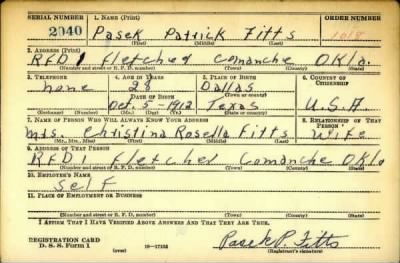 SERIAL NUMBER 1. NAME (Print) ORDER NUMBER
2040 Pasek Patrick Fitts 1018
(First) (Middle) (Last)
2. ADDRESS (Print)
RFD 1 Fletcher Comanche Okla.
(Number and street or R. F. D. number) (Town) (County) (State)
3. TELEPHONE 4. AGE IN YEARS 5. PLACE OF BIRTH 6. COUNTRY OF CITIZENSHIP
none 28 Dallas
DATE OF BIRTH (Town or county)
Oct. 5-1912 Texas U.S.A.
(Exchange) (Number) (Mo.) (Day) (Yr.) (State or country)
7. NAME OF PERSON WHO WILL ALWAYS KNOW YOUR ADDRESS 8. RELATIONSHIP OF THAT PERSON
Mrs. Christina Rosella Fitts Wife
(Mr., Mrs., Miss) (First) (Middle) (Last)
9. ADDRESS OF THAT PERSON
RFD 1 Fletcher Comanche Okla
(Number and street or R. F. D. number) (Town) (County) (State)
10. EMPLOYER'S NAME
Self
11. PLACE OF EMPLOYMENT OR BUSINESS
(Number and street or R. F. D. number) (Town) (County) (State)
I AFFIRM THAT I HAVE VERIFIED ABOVE ANSWERS AND THAT THEY ARE TRUE.
REGISTRATION CARD
D. S. S. Form 1 (over) 16—17105 Pasek P. Fitts
(Registrant's signature)